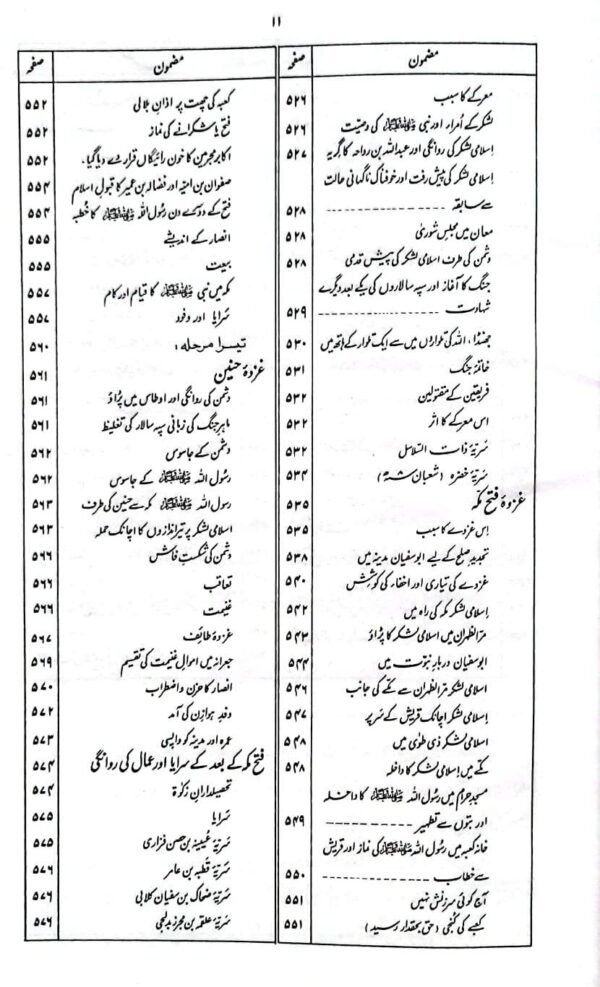 ۱۱
مضمون صفحہ
معرکے کا سبب ۵۲۶
لشکر کے اُمراء اور نبی ﷺ کی وصیّت ۵۲۶
اسلامی لشکر کی روانگی اور عبداللہ بن رواحہ کا گریہ ۵۲۷
اِسلامی لشکر کی پیش رفت اور خوفناک ناگہانی حالت
سے سابقہ ۵۲۸
معان میں مجلسِ شوریٰ ۵۲۸
دشمن کی طرف اسلامی لشکر کی پیش قدمی ۵۲۸
جنگ کا آغاز اور سپہ سالاروں کی یکے بعد دیگرے
شہادت ۵۲۹
جھنڈا، اللہ کی تلواروں میں سے ایک تلوار کے ہاتھ میں ۵۳۰
خاتمۂ جنگ ۵۳۱
فریقین کے مقتولین ۵۳۲
اس معرکے کا اثر ۵۳۲
سَریّۂ ذات السلاسل ۵۳۲
سَریّۂ خضرہ (شعبان ۸ھ) ۵۳۴
غزوۂ فتح مکہ ۵۳۵
اِس غزوے کا سبب ۵۳۵
تجدیدِ صلح کے لیے ابو سفیان مدینہ میں ۵۳۸
غزوے کی تیاری اور اخفاء کی کوشش ۵۴۰
اِسلامی لشکر مکہ کی راہ میں ۵۴۲
مرّ الظہران میں اسلامی لشکر کا پڑاؤ ۵۴۳
ابو سفیان دربارِ نبوّت میں ۵۴۴
اسلامی لشکر مرّ الظہران سے مکّے کی جانب ۵۴۶
اِسلامی لشکر اچانک قریش کے سَر پر ۵۴۷
اسلامی لشکر ذی طویٰ میں ۵۴۸
مکّے میں اِسلامی لشکر کا داخلہ ۵۴۸
مسجدِ حرام میں رسول اللہ ﷺ کا داخلہ
اور بتوں سے تطہیر ۵۴۹
خانہ کعبہ میں رسول اللہ ﷺ کی نماز اور قریش
سے خطاب ۵۵۰
آج کوئی سرزنش نہیں ۵۵۱
کعبے کی کُنجی (حق بحقدار رسید) ۵۵۱
مضمون صفحہ
کعبہ کی چھت پر اذانِ بلالی ۵۵۲
فتح یا شکرانے کی نماز ۵۵۲
اکابر مجرمین کا خون رائیگاں قرار دے دیا گیا۔ ۵۵۲
صفوان بن امیہ اور فضالہ بن عمیر کا قبولِ اسلام ۵۵۴
فتح کے دوسرے دن رسول اللہ ﷺ کا خُطبہ ۵۵۴
انصار کے اندیشے ۵۵۵
بیعت ۵۵۵
مکہ میں نبی ﷺ کا قیام اور کام ۵۵۷
سَرایا اور وفود ۵۵۷
تیسرا مرحلہ: ۵۶۰
غزوۂ حنین ۵۶۱
دشمن کی روانگی اور اوطاس میں پڑاؤ ۵۶۱
ماہرِ جنگ کی زبانی سپہ سالار کی تغلیط ۵۶۱
دشمن کے جاسوس ۵۶۲
رسول اللہ ﷺ کے جاسوس ۵۶۲
رسول اللہ ﷺ مکہ سے حنین کی طرف ۵۶۳
اسلامی لشکر پر تیراندازوں کا اچانک حملہ ۵۶۳
دشمن کی شکستِ فاش ۵۶۶
تعاقب ۵۶۶
غنیمت ۵۶۶
غزوۂ طائف ۵۶۷
جعرانہ میں اموالِ غنیمت کی تقسیم ۵۶۹
انصار کا حزن و اضطراب ۵۷۰
وفدِ ہوازن کی آمد ۵۷۲
عمرہ اور مدینہ کو واپسی ۵۷۳
فتح مکہ کے بعد کے سرایا اور عمال کی روانگی ۵۷۴
تحصیلدارانِ زکوٰۃ ۵۷۴
سَرایا ۵۷۵
سَریّۂ عُیینہ بن حصن فزاری ۵۷۵
سَریّۂ قطبہ بن عامر ۵۷۶
سَریّۂ ضحاک بن سفیان کلابی ۵۷۶
سَریّۂ علقمہ بن مجزز مدلجی ۵۷۶